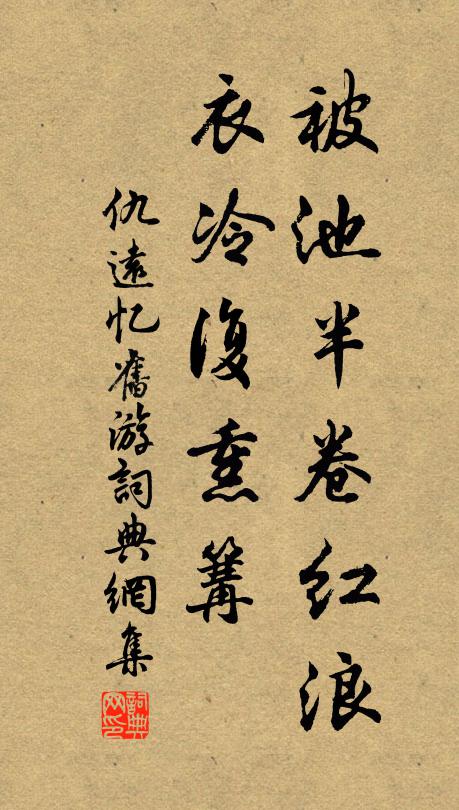 被池半卷红浪
衣冷復熏篝
仇遠忆舊游詞典網集
詞典网印